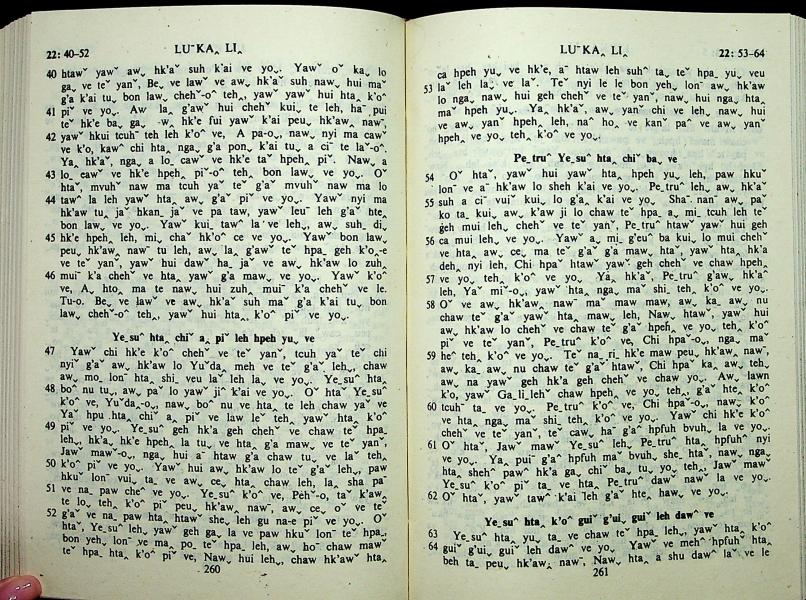 22: 40–52
LUˉ KA‸ LI‸
40 htawˇ yawˇ aw‸ hk'aˇ suh k'ai ve yo‸. Yawˇ oˇ ka‸ lo
ga‸ ve teˇ yanˇ, Be‸ ve lawˇ ve aw‸ hk'aˇ suh naw‸ hui maˇ
g'a k'ai tu‸ bon law‸ chehˇ-oˆ teh‸ yawˇ yawˇ hui hta‸ k'oˆ
41 piˇ ve yo‸. Aw‸ la‸ g'awˇ hui chehˇ kui‸ te leh, haˉ pui
teˇ hk'e ba‸ ga‸ hk'e fui yawˇ k'ai peu‸ hk'aw‸ nawˉ,
42 yawˇ hkui tcuhˉ teh leh k'oˆ ve, A pa-o‸, naw‸ nyi ma cawˇ
ve k'o, kawˆ chi hta‸ nga‸ g'a pon‸ k'ai tu‸ a ciˉ te laˇ-oˆ.
Ya‸ hk'aˇ, nga‸ a lo‸ cawˇ ve hk'e ta hpeh‸ piˇ. Naw‸ a
43 lo‸ cawˇ ve hk'e hpeh‸ piˇ-oˆ teh‸ bon law‸ ve yo‸. Oˇ
htaˇ, mvuhˇ naw ma tcuh yaˇ teˇ g'aˇ mvuhˇ naw ma lo
44 tawˆ la leh yawˇ hta‸ aw‸ g'aˇ piˇ ve yo‸. Yawˇ nyi ma
hk'aw tu‸ jaˇ hkan‸ jaˇ ve pa taw, yawˇ leuˉ leh g'aˇ hte‸
bon law‸ ve yo‸. Yawˇ kui‸ tawˆ laˇ ve leh‸ aw‸ suh‸ di‸
45 hk'e hpeh‸ leh, mi‸ chaˇ hk'oˆ ce ve yo‸. Yawˇ bon law‸
peu‸ hk'aw‸ nawˉ tu leh, aw‸ la‸ g'awˇ teˇ hpa‸ geh k'o‸-e
ve teˇ yanˇ, yawˇ hui dawˇ haˉ jaˇ ve aw‸ hk'aw lo zuh‸
46 muiˉ k'a chehˇ ve hta‸ yawˇ g'a maw‸ ve yo‸. Yawˇ k'oˆ
ve, A hto‸ ma te naw‸ hui zuh‸ muiˉ k'a chehˇ ve le.
Tu-o. Be‸ ve lawˇ ve aw‸ hk'aˇ suh maˇ g'a k'ai tu‸ bon
law‸ chehˇ-oˆ teh‸, yawˇ hui hta‸ k'oˆ piˇ ve yo‸.
Ye‸suˆ hta‸ chiˇ a‸ piˇ leh hpeh yu‸ ve
47 Yawˇ chi hk'e k'oˆ chehˇ ve teˇ yanˇ, tcuh yaˇ teˇ chi
nyiˇ g'aˇ aw‸ hk'aw lo Yuˇda‸ meh ve teˇ g'aˇ leh‸, chaw
aw‸ mo‸ lonˉ hta‸ shi‸ veu laˇ leh la‸ ve yo‸. Ye‸suˆ hta‸
48 boˆ nu tu‸, aw‸ paˇ lo yawˇ jiˆ k'ai ve yo‸. Oˇ htaˇ Ye‸suˆ
k'oˆ ve, Yuˇda‸-o‸, naw‸ boˆ nu ve hta‸ te leh chaw yaˇ ve
Yaˇ hpu hta‸ chiˇ a‸ piˇ ve law leˇ teh‸ yawˇ hta‸ k'oˆ
49 piˇ ve yo‸. Ye‸suˆ geh hk'a geh chehˇ ve chaw teˇ hpa‸
leh‸, hk'a‸ hk'e hpeh‸ la tu‸ ve hta‸ g'a maw‸ ve teˇ yanˇ,
Jawˇ mawˇ-o‸, nga hui aˉ htaw g'a chaw tu‸ ve la teh‸
50 k'oˆ piˇ ve yo‸. Yawˇ hui aw‸ hk'aw lo teˇ g'aˇ leh‸, paw
hkuˇ lonˉ vui‸ ta‸ ve aw‸ ce‸ hta‸ chaw leh, la‸ sha paˉ
51 ve na‸ paw cheˆ ve yo‸. Ye‸suˆ k'oˆ ve, Pehˇ-o, taˇ k'aw‸
te lo‸ teh‸ k'oˆ piˇ peu‸ hk'aw‸ nawˉ, aw‸ ce‸ oˇ ve teˇ
52 g'aˇ ve na‸ paw hta‸ htawˇ she‸ leh gu na-e piˇ ve yo‸. Oˇ
htaˇ, Ye‸suˆ leh‸ yawˇ geh ga‸ la ve paw hkuˇ lonˉ teˇ hpa‸
bon yeh‸ lonˉ ve ma‸ po‸ teˇ hpa‸ leh, aw‸ hoˉ chaw mawˇ
teˇ hpa‸ hta‸ k'oˆ piˇ ve, Naw‸ hui leh‸ chaw hk'awˇ hta‸
260
LUˉ KA‸ LI‸
22: 53–64
ca hpeh yu‸ ve hk'e, aˉ htaw leh suhˆ ta‸ teˇ hpa‸ yu‸ veu
53 laˇ leh la‸ ve laˇ. Teˇ nyi le le bon yeh‸ lonˉ aw‸ hk'aw
lo nga‸ naw‸ hui geh chehˇ ve teˇ yanˇ, naw‸ hui nga‸ hta‸
maˇ hpeh yu‸. Ya‸ hk'aˇ, aw‸ yanˇ chi ve leh‸ naw‸ hui
ve aw‸ yanˇ hpeh‸ leh, naˆ ho‸ ve kanˇ paˆ ve aw‸ yanˇ
hpeh‸ ve yo‸ teh‸ k'oˆ ve yo‸.
Pe‸truˆ Ye‸suˆ hta‸ chiˆ ba‸ ve
54 Oˇ htaˇ, yawˇ hui yawˇ hta‸ hpeh yu‸ leh, paw hkuˇ
lonˉ ve aˉ hk'aw lo sheh k'ai ve yo‸. Pe‸truˆ leh‸ aw‸ hk'aˇ
55 suh a ciˉ vuiˇ kui‸ lo g'a‸ k'ai ve yo‸. Shaˉ nanˇ aw‸ paˇ
ko ta‸ kui‸ aw‸ k'aw ji lo chaw teˇ hpa‸ a‸ mi‸ tcuh leh teˇ
geh mui leh‸ chehˇ ve teˇ yanˇ, Pe‸truˆ htawˇ yawˇ hui geh
56 ca mui leh‸ ve yo‸. Yawˇ a‸ mi‸ g'euˆ ba kui‸ lo mui chehˇ
ve hta‸ aw‸ ce‸ ma teˇ g'aˇ g'a maw‸ htaˇ, yawˇ hta‸ hk'a
deh‸ nyi leh, Chi hpaˇ htawˇ yawˇ geh chehˇ ve chaw hpeh‸
57 ve yo‸ teh‸ k'oˆ ve yo‸. Ya‸ hk'aˇ, Pe‸truˆ g'aw‸ hk'aˆ
leh, Yaˇ miˇ-o‸, yawˇ hta‸ nga‸ maˇ shi‸ teh‸ k'oˆ ve yo‸.
58 Oˇ ve aw‸ hk'aw‸ nawˉ maˇ maw maw‸ aw‸ ka‸ aw‸ nu
chaw teˇ g'aˇ yawˇ hta‸ maw‸ leh, Naw‸ htawˇ, yawˇ hui
aw‸ hk'aw lo chehˇ ve chaw teˇ g'aˇ hpeh‸ ve yo‸ teh‸ k'oˆ
piˇ ve teˇ yanˇ, Pe‸truˆ k'oˆ ve, Chi hpaˇ-o‸, nga‸ maˇ
59 heˆ teh‸ k'oˆ ve yo‸. Teˇ na‸ri‸ hk'e maw peu‸ hk'aw‸ nawˉ,
aw‸ ka‸ aw‸ nu chaw teˇ g'aˇ htawˇ, Chi hpaˇ ka‸ aw‸ teh‸
aw‸ na yawˇ geh hk'a geh chehˇ ve chaw yo‸. Aw‸ lawn
k'o, yawˇ Ga‸li‸lehˇ chaw hpeh‸ ve yo‸ teh‸ g'aˇ hte‸ k'oˆ
60 tcuhˉ ta‸ ve yo‸. Pe‸truˆ k'oˆ ve, Chi hpaˇ-o‸, naw‸ k'oˆ
ve hta‸ nga‸ maˇ shi‸ teh‸ k'oˆ ve yo‸. Yawˇ chi hk'e k'oˆ
chehˇ ve teˇ yanˇ, teˇ caw‸ haˉ g'aˆ hpfuh bvuh‸ la ve yo‸.
61 Oˇ htaˇ, Jawˇ mawˇ Ye‸suˆ leh‸ Pe‸truˆ hta‸ hpfuhˆ nyi
ve yo‸. Ya‸ puiˉ g'aˆ hpfuh maˇ bvuh‸ she‸ htaˇ, naw‸ nga‸
hta‸ shehˆ pawˆ hk'a ga‸ chiˆ ba‸ tu‸ yo‸ teh‸ Jawˇ mawˇ
Ye‸suˆ k'oˆ piˇ ta‸ ve hta‸ Pe‸truˆ dawˇ nawˉ la ve yo‸.
62 Oˇ htaˇ, yawˇ tawˆ k'ai leh g'aˇ hte‸ haw‸ ve yo‸.
Ye‸suˆ hta‸ k'oˆ guiˇ g'ui‸ guiˇ leh dawˆ ve
63 Ye‸suˆ hta‸ yu‸ ta‸ ve chaw teˇ hpa‸ leh‸, yawˇ hta‸ k'oˆ
64 guiˇ g'ui‸ guiˇ leh dawˆ ve yo‸. Yawˇ ve mehˇ hpfuhˇ hta‸
beh ta‸ peu‸ hk'aw‸ nawˉ, Naw‸ hta‸ a shu dawˆ laˇ ve le
261